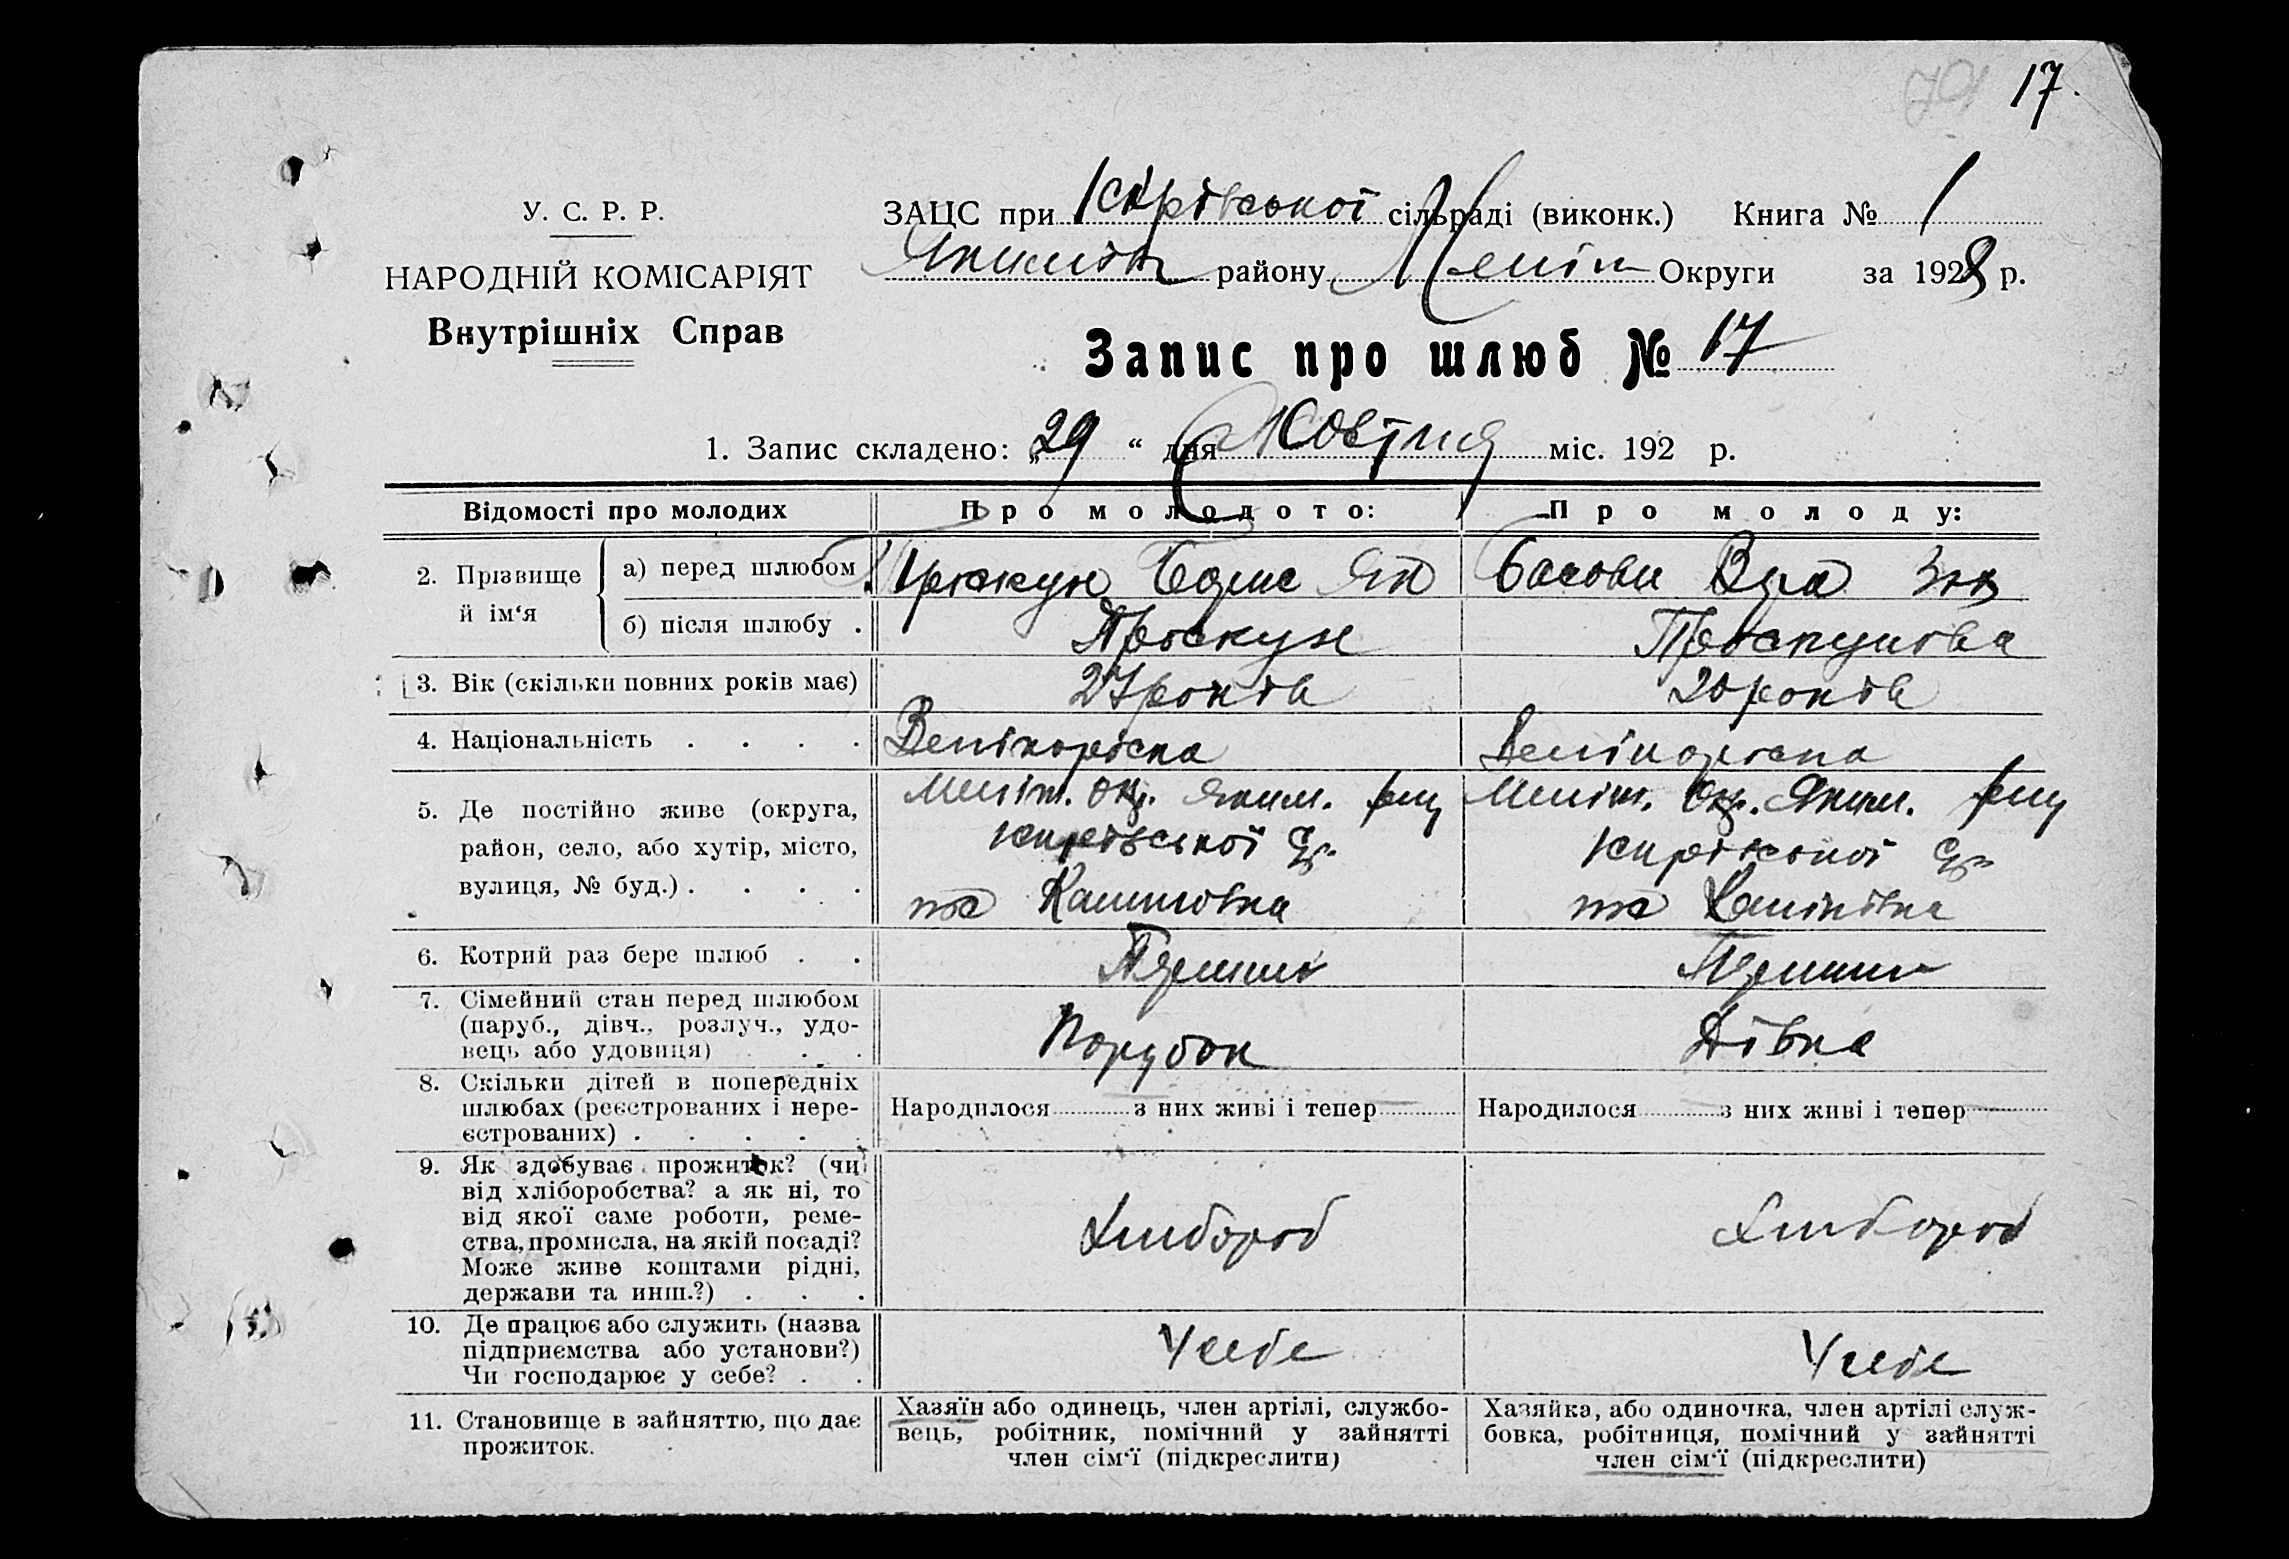 17.
У. С. Р. Р.
НАРОДНІЙ КОМІСАРІЯТ
Внутрішніх Справ
ЗАЦС при Кірівської сільраді (виконк.) Книга № 1
Якимів району Меліт Округи за 1928 р.
Запис про шлюб № 17
1. Запис складено: „29“ дня Жовтня міс. 192 р.
Відомості про молодих
Про молодого:
Про молоду:
2. Прізвище й ім‘я
а) перед шлюбом
Проскун
Вера
б) після шлюбу .
Проскун
Проскунова
3. Вік (скільки повних років має)
27 років
20 років
4. Національність . . . .
Велікоріска
Велікоріска
5. Де постійно живе (округа,
район, село, або хутір, місто,
вулиця, № буд.) . . . .
Меліт. Окр. Яким. р-ну
Кирівської
Меліт. Окр. Яким. р-ну
Кирівської
6. Котрий раз бере шлюб . .
Перший
Перший
7. Сімейний стан перед шлюбом
(паруб., дівч., розлуч., удо-
вець або удовиця) . .
Порубок
Дівка
8. Скільки дітей в попередніх
шлюбах (реєстрованих і нере-
єстрованих) . . . . .
Народилося з них живі і тепер
Народилося з них живі і тепер
9. Як здобуває прожиток? (чи
від хліборобства? а як ні, то
від якої саме роботи, реме-
ства, промисла, на якій посаді?
Може живе коштами рідні,
держави та инш.?) . . .
Хлибороб
Хлибороб
10. Де працює або служить (назва
підприємства або установи?)
Чи господарює у себе? . .
У себе
У себе
11. Становище в зайняттю, що дає
прожиток.
Хазяїн або одинець, член артілі, службо-
вець, робітник, помічний у зайнятті
член сім‘ї (підкреслити)
Хазяйка, або одиночка, член артілі служ-
бовка, робітниця, помічний у зайнятті
член сім‘ї (підкреслити)